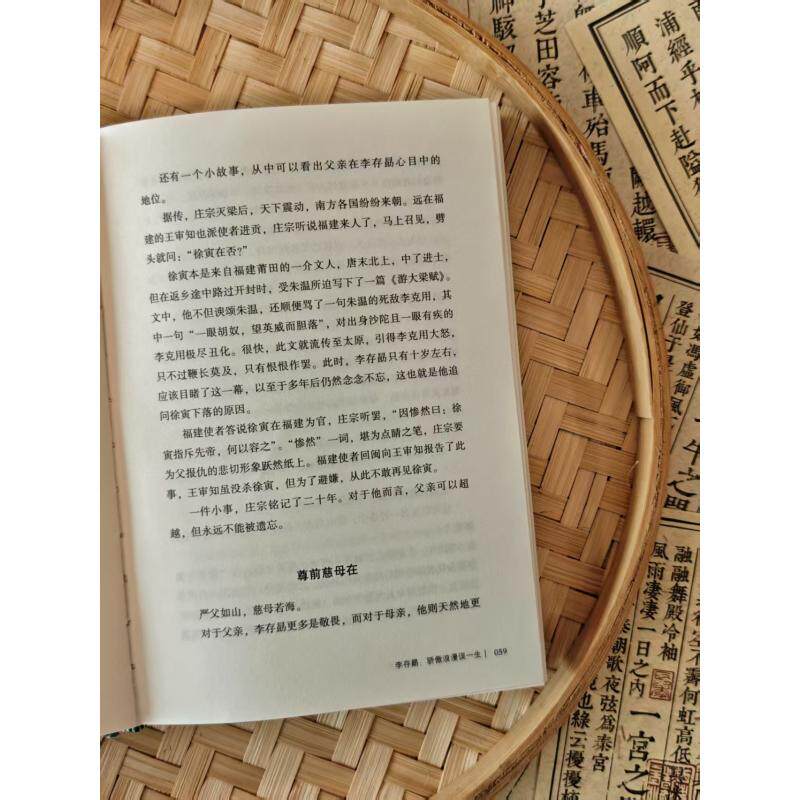 还有一个小故事，从中可以看出父亲在李存勗心目中的
地位。
据传，庄宗灭梁后，天下震动，南方各国纷纷来朝。远在福
建的王审知也派使者进贡，庄宗听说福建来人了，马上召见，劈
头就问：“徐寅在否?”
徐寅本是来自福建莆田的一介文人，唐末北上，中了进士，
但在返乡途中路过开封时，受朱温所迫写下了一篇《游大梁赋》。
文中，他不但谀颂朱温，还顺便骂了一句朱温的死敌李克用，其
中一句“一眼胡奴，望英威而胆落”，对出身沙陀且一眼有疾的
李克用极尽丑化。很快，此文就流传至太原，引得李克用大怒，
只不过鞭长莫及，只有恨恨作罢。此时，李存勗只有十岁左右，
应该目睹了这一幕，以至于多年后仍然念念不忘，这也就是他追
问徐寅下落的原因。
福建使者答说徐寅在福建为官，庄宗听罢，“因惨然曰：徐
寅指斥先帝，何以容之”。“惨然”一词，堪为点睛之笔，庄宗要
为父报仇的悲切形象跃然纸上。福建使者回闽向王审知报告了此
事，王审知虽没杀徐寅，但为了避嫌，从此不敢再见徐寅。
一件小事，庄宗铭记了二十年。对于他而言，父亲可以超
越，但永远不能被遗忘。
尊前慈母在
严父如山，慈母若海。
对于父亲，李存勗更多是敬畏，而对于母亲，他则天然地更
李存勗：骄傲浪漫误一生 | 059
浦經乎
順阿而下赴
越轘
芝田容
車殆馬
神駭
登仙
馮虛御風
融融舞殿冷袖
風雨淒淒一日之內
一宮之
朝歌夜弦為秦宮
也綠雲擾擾
何虹高低